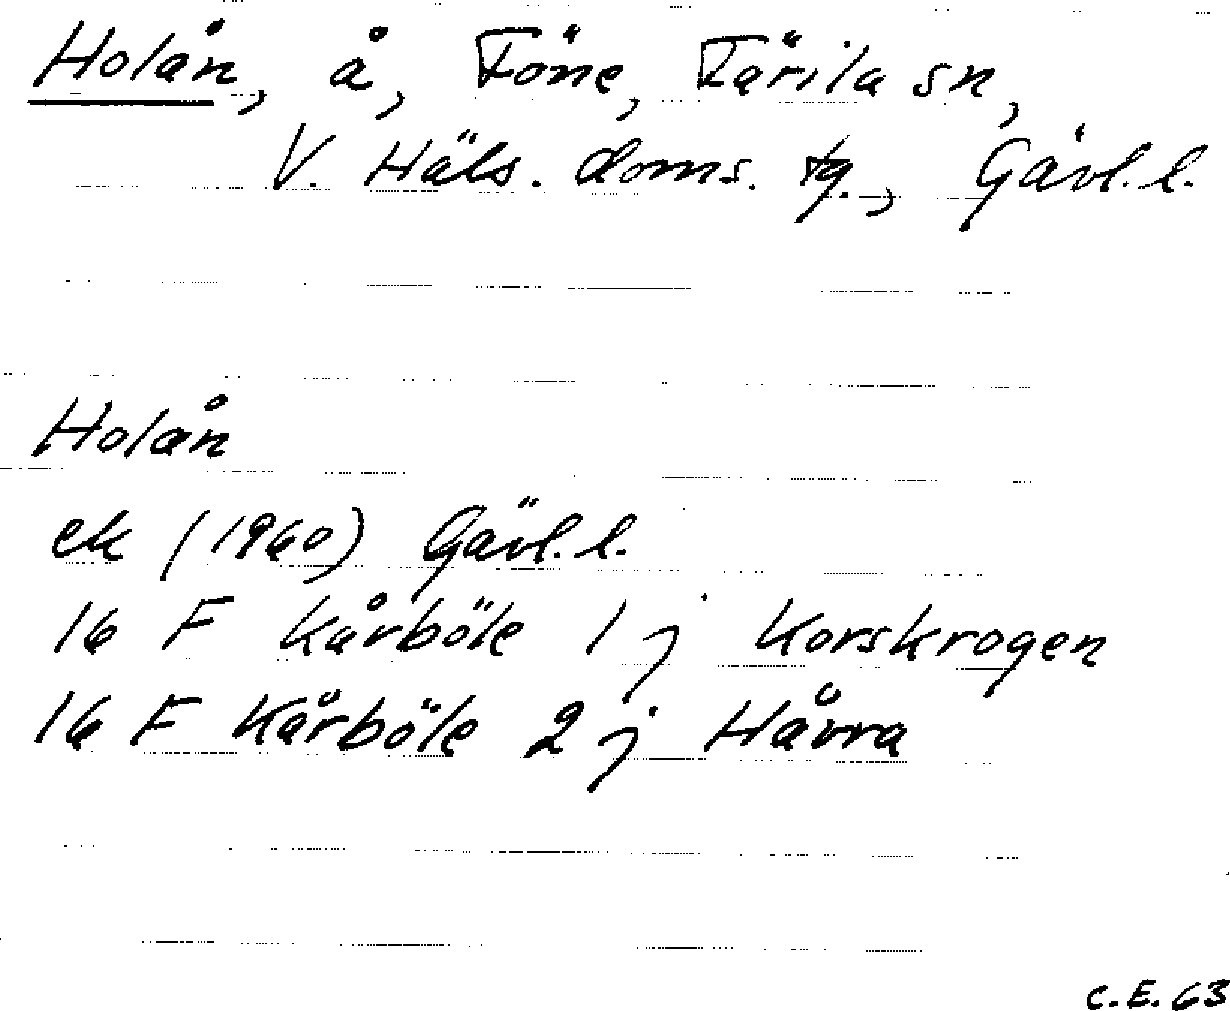 Holån, å, Föne, Färila sn,
V. Häls. doms. tg., Gävl. l.
Holån
ek (1960) Gävl. l.
16 F Kårböle 1 j Korskrogen
16 F Kårböle 2 j Håvra
C.E. 63